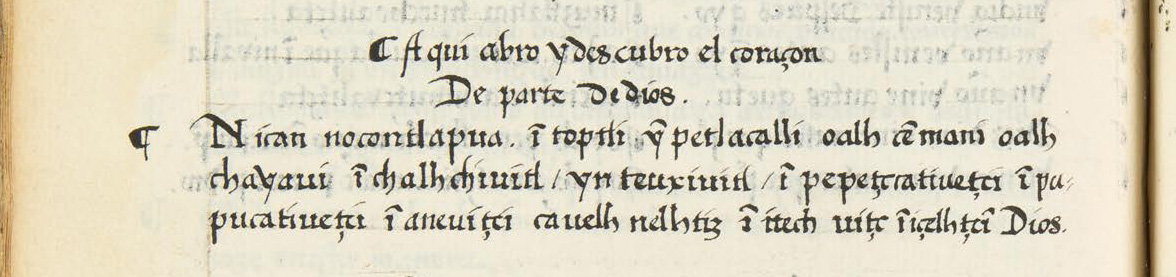 ¶ Aqui abro y descubro el coraçon
De parte de dios.
¶ Nican nocontlapua. ĩ toptli. ỹ petlacalli oalh cẽmani oalh
chayaui ĩ chalhchiuitl / yn teuxiuitl / ĩ pepetzcatiuetçi ĩ pu-
pucatiuetçi ĩ aneuitçi ca uelh nelhtiz ĩ itech uitç ĩ içelhtçĩ Dios.